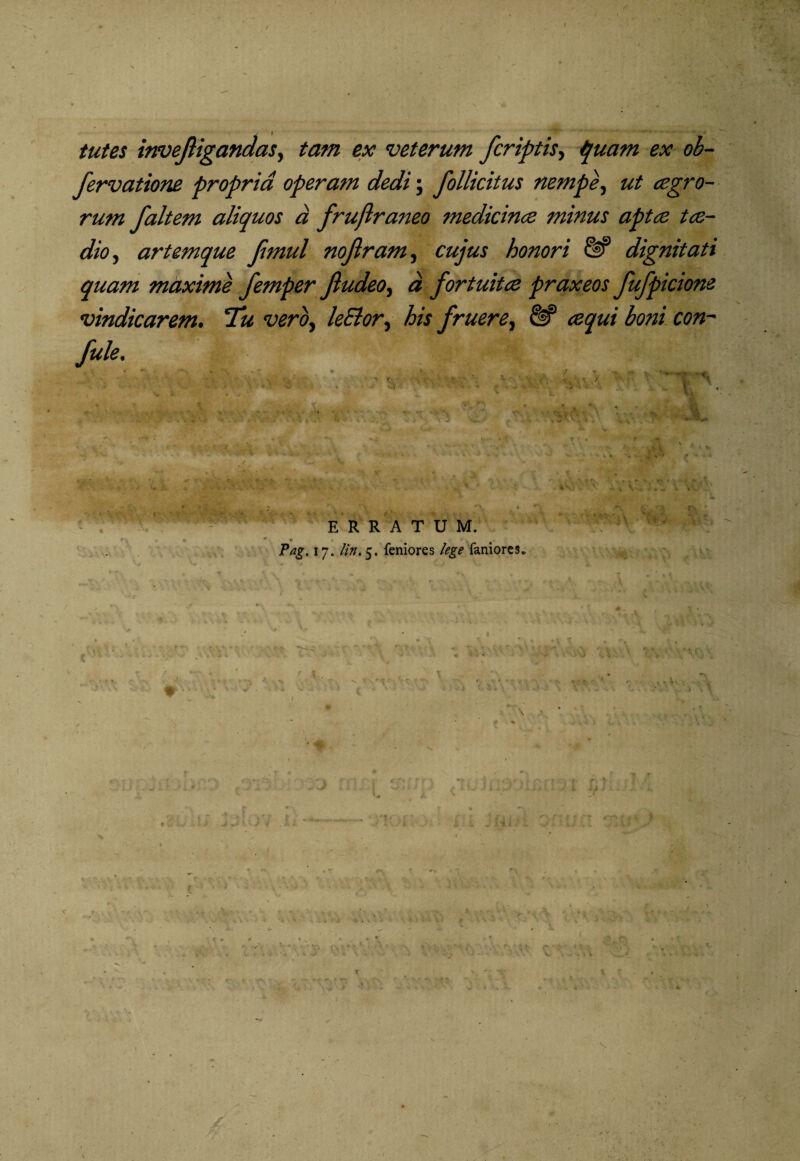 tutes inveſtigandas, tam ex veterum ſcriptis, quam ex ob-
ſervatione propriâ operam dedi; ſollicitus nempè, ut ægro-
rum ſaltem aliquos à fruſtraneo medicinæ minus aptæ tæ-
dio, artemque ſimul noſtram, cujus honori & dignitati
quam maximè ſemper ſtudeo, à fortuitæ praxeos ſuſpicione
vindicarem. Tu verò, lector, his fruere, & æqui boni con-
ſule.
ERRATUM.
Pag. 17. lin. 5. ſeniores lege ſaniores.